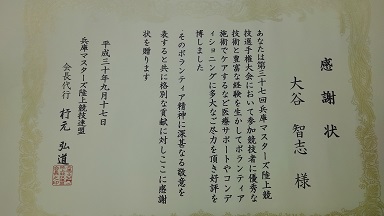 感謝状
大谷 智志 様
あなたは第三十七回兵庫マスターズ陸上競
技選手権大会において参加競技者に優秀な
技術と豊富な経験を生かしてボランティア
施術でケアするなど医療サポートやコンデ
ィショニングに多大なご尽力を頂き好評を
博しました
そのボランティア精神に深甚なる敬意を
表すると共に格別な貢献に対しここに感謝
状を贈ります
平成三十年九月十七日
兵庫マスターズ陸上競技連盟
会長代行 行元 弘道